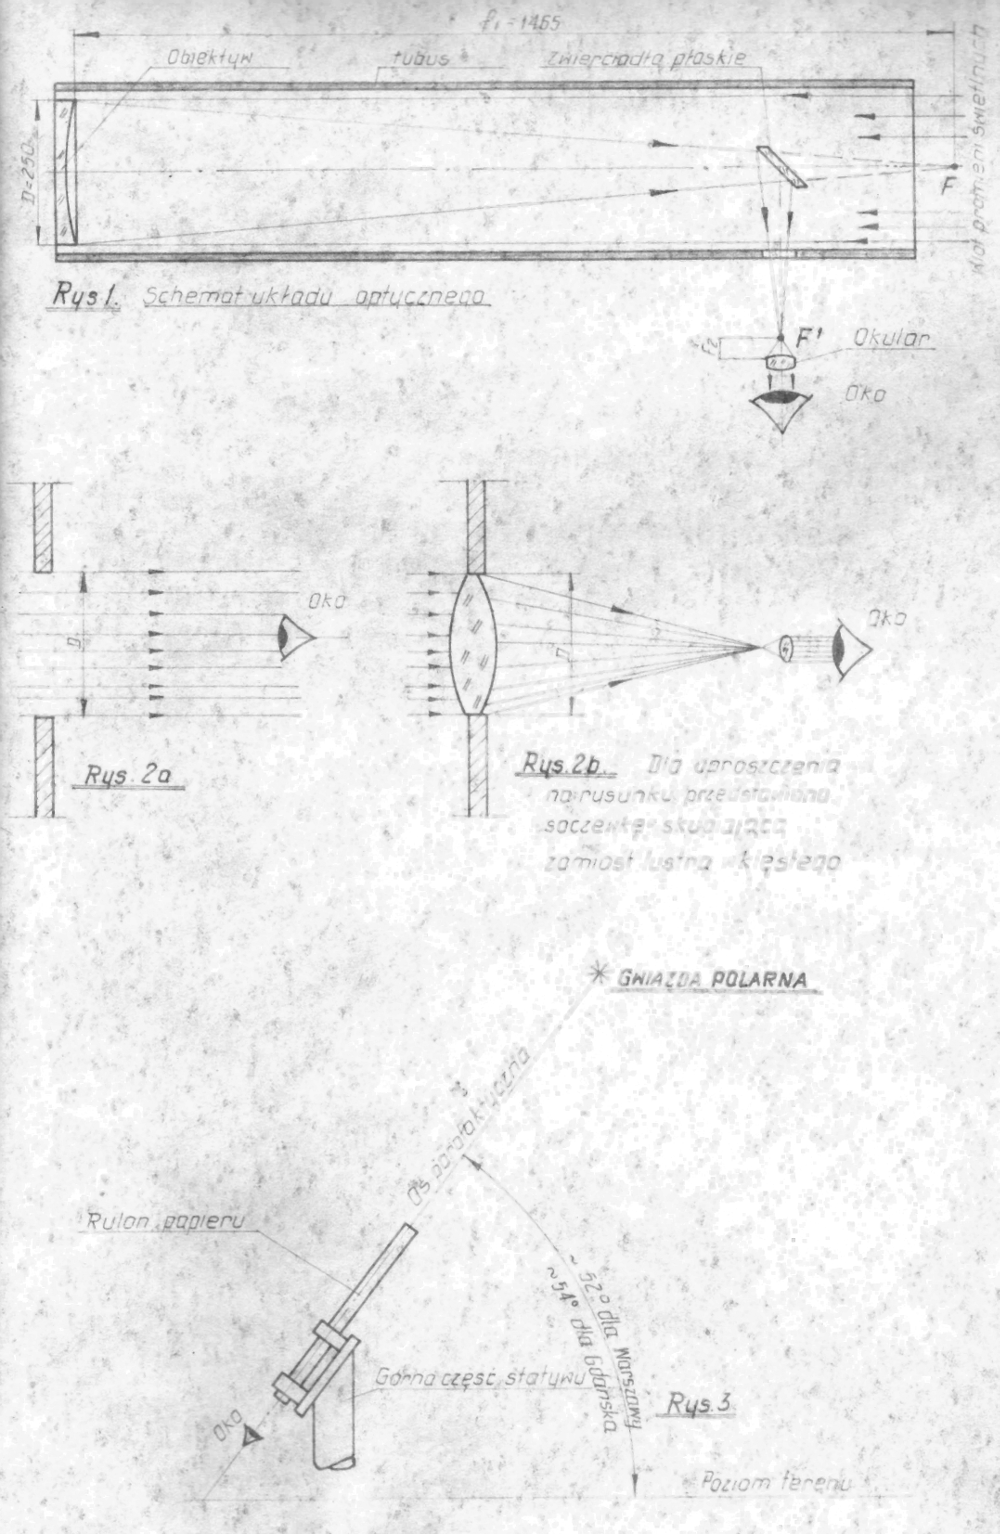 f₁ = 1465
Obiektyw
tubus
Zwierciadło płaskie
D=250
F
Wiot promieni świetlnych
Rys 1. Schemat układu optycznego
F'
f₂
Okular
Oko
Oko
D
Rys. 2a
Oko
D
Rys. 2b. Dla uproszczenia
na rusunku przedstawiono
soczewkę skupiającą
zamiast lustra wklęsłego
GWIAZDA POLARNA
Oś paralaktyczna
Rulon papieru
~ 52° dla Warszawy
~54° dla Gdańska
Górna część statywu
Rys. 3
Oko
Poziom terenu